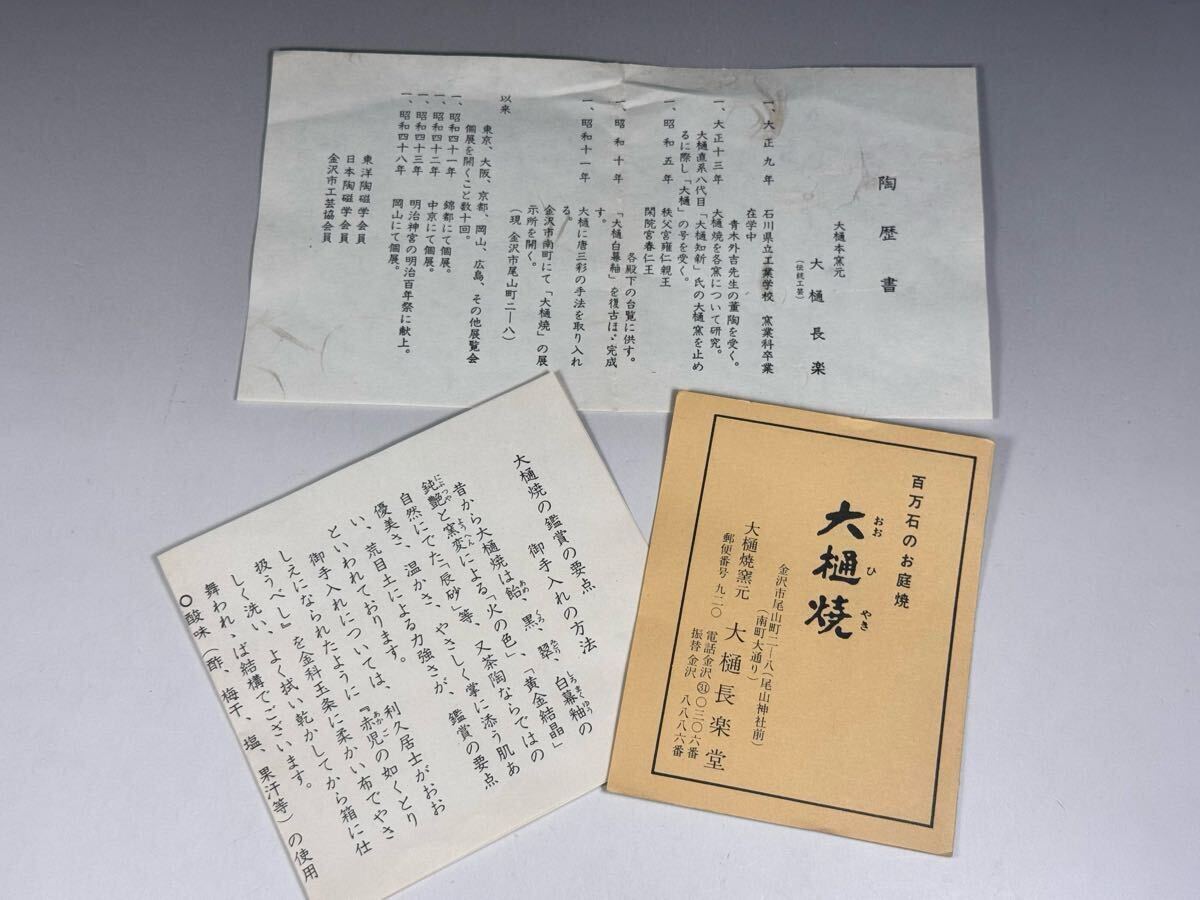 陶歴書
大樋本窯元
(伝統工芸)
大樋長楽
一、大正九年 石川県立工業学校 窯業科卒業
在学中
青木外吉先生の薫陶を受く。
一、大正十三年 大樋焼を各窯について研究。
大樋直系八代目「大樋知新」氏の大樋窯を止め
るに際し「大樋」の号を受く。
一、昭和五年 秩父宮雍仁親王
閑院宮春仁王
各殿下の台覧に供す。
一、昭和十年 「大樋白幕釉」を復古ほゞ完成
す。
一、昭和十一年 大樋に唐三彩の手法を取り入れ
る。
金沢市南町にて「大樋焼」の展
示所を開く。
(現 金沢市尾山町二ー八)
以来
東京、大阪、京都、岡山、広島、その他展覧会
個展を開くこと数十回。
一、昭和四十一年 錦都にて個展。
一、昭和四十二年 中京にて個展。
一、昭和四十三年 明治神宮の明治百年祭に献上。
一、昭和四十八年 岡山にて個展。
東洋陶磁学会員
日本陶磁学会員
金沢市工芸協会員
大樋焼の鑑賞の要点 御手入れの方法
昔から大樋焼は飴、黒、翠、白幕釉の
あめ くろ みどり しろまくゆう
鈍艶と窯変による「火の色」、「黄金結晶」
にぶつや ようへん
自然にでた「辰砂」等、又茶陶ならではの
優美さ、温かさ、やさしく掌に添う肌あ
い、荒目土による力強さが、鑑賞の要点
といわれております。
御手入れについては、利久居士がおお
しえになられたように『赤児の如くとり
あかご
扱うべし』を金科玉条に柔かい布でやさ
しく洗い、よく拭い乾かしてから箱に仕
舞われゝば結構でございます。
○酸味(酢、梅干、塩、果汁等)の使用
百万石のお庭焼
大樋焼
おお ひ やき
金沢市尾山町二ー八(尾山神社前)
(南町大通り)
大樋焼窯元 大樋長楽堂
郵便番号 九二〇 電話金沢㉛〇三〇六番
振替金沢 八八八六番